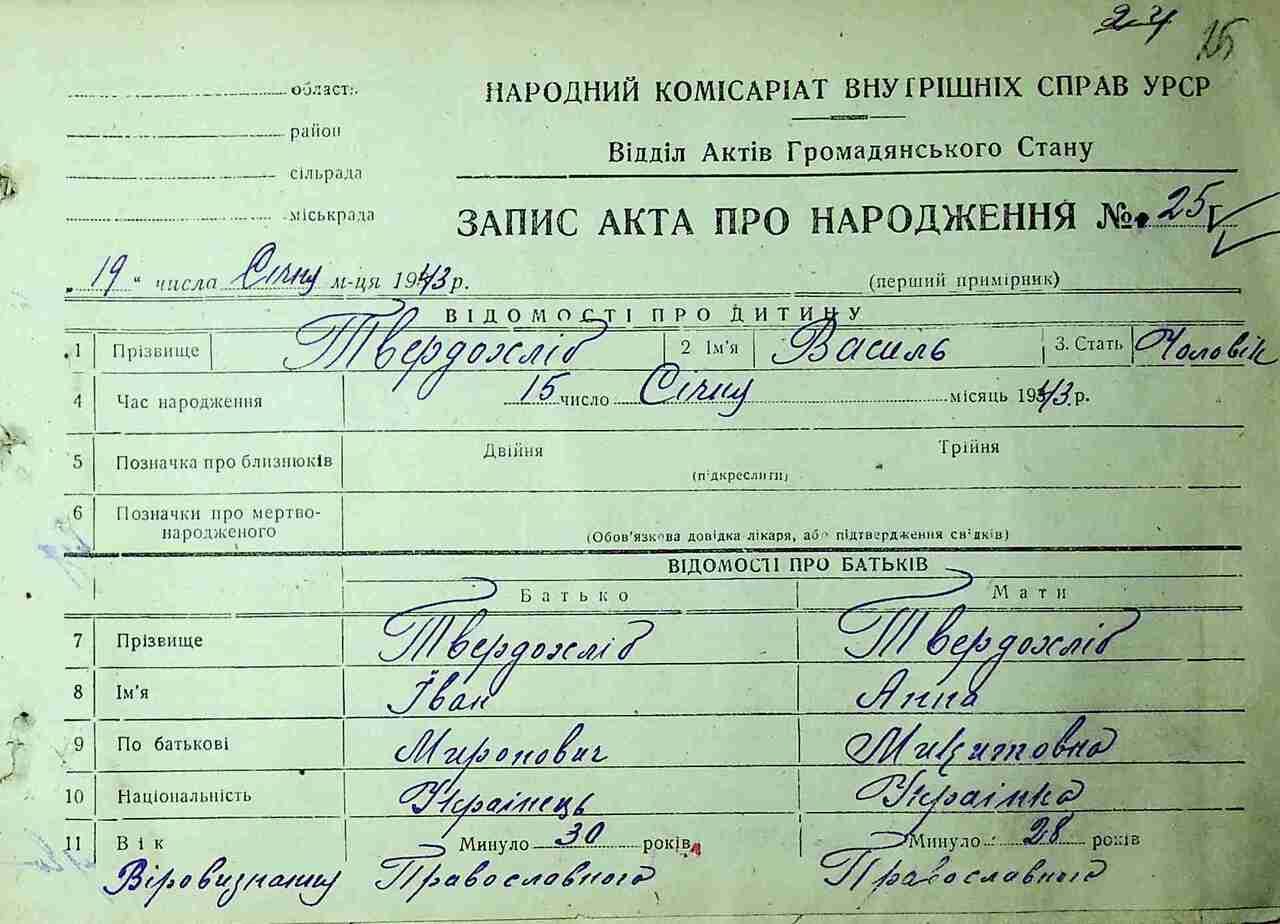 24 25
област.
НАРОДНИЙ КОМІСАРІАТ ВНУТРІШНІХ СПРАВ УРСР
район
Відділ Актів Громадянського Стану
сільрада
міськрада
ЗАПИС АКТА ПРО НАРОДЖЕННЯ №. 25
„ 19 " числа Січня м-ця 1943 р.
(перший примірник)
ВІДОМОСТІ ПРО ДИТИНУ
1 Прізвище Твердохліб 2 Ім'я Василь 3. Стать Чоловік
4 Час народження 15 число Січня місяць 1943 р.
5 Позначка про близнюків Двійня Трійня
(підкреслити)
6 Позначки про мертво-
народженого
(Обов'язкова довідка лікаря, або підтвердження свідків)
ВІДОМОСТІ ПРО БАТЬКІВ
Батько Мати
7 Прізвище Твердохліб Твердохліб
8 Ім'я Їван Анна
9 По батькові Миронович Микитовна
10 Національність Украінець Украінка
11 Вік Минуло 30 років Минуло 28 років
Віровизнання Православного Православного